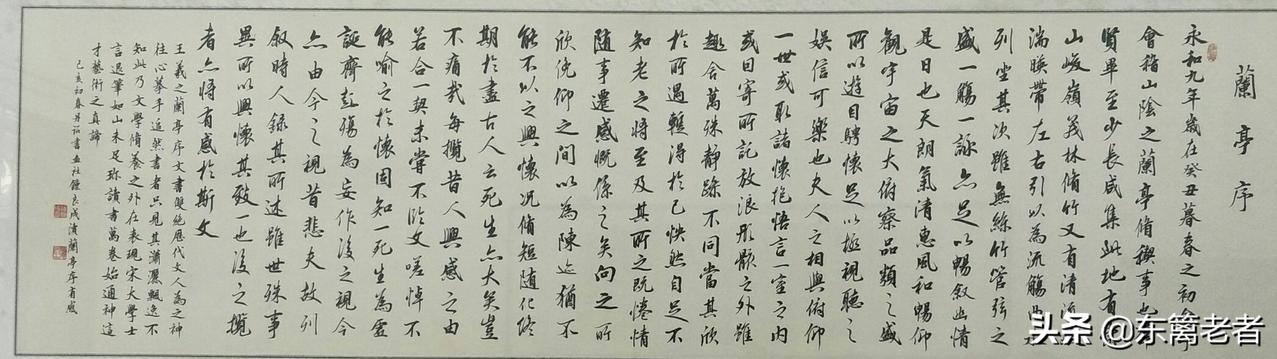 蘭亭序
永和九年歲在癸丑暮春之初會
會稽山陰之蘭亭脩禊事也
賢畢至少長咸集此地有
山峻嶺茂林脩竹又有清流
湍暎帶左右引以為流觴曲
列坐其次雖無絲竹管弦之
盛一觴一詠亦足以暢叙幽情
是日也天朗氣清惠風和暢仰
觀宇宙之大俯察品類之盛
所以遊目騁懷足以極視聽之
娛信可樂也夫人之相與俯仰
一世或取諸懷抱悟言一室之内
或因寄所託放浪形骸之外雖
趣舍萬殊靜躁不同當其欣
於所遇輒得於己怏然自足不
知老之將至及其所之既惓情
隨事遷感慨係之矣向之所
欣俛仰之間以為陳迹猶不
能不以之興懷況脩短隨化終
期於盡古人云死生亦大矣豈
不痛哉每攬昔人興感之由
若合一契未嘗不臨文嗟悼不
能喻之於懷固知一死生為虛
誕齊彭殤為妄作後之視今
亦由今之視昔悲夫故列
叙時人錄其所述雖世殊事
異所以興懷其致一也後之攬
者亦將有感於斯文
王羲之蘭亭序文書雙絶歷代文人為之神
往心摹手追然書者只見其瀟灑飄逸不
知此乃文學脩養之外在表現宋大學士
言退筆如山未足珍讀書萬卷始通神這
才藝術之真諦
己亥初春書畫社鍾良成演蘭亭序有感
头条 @东篱老者